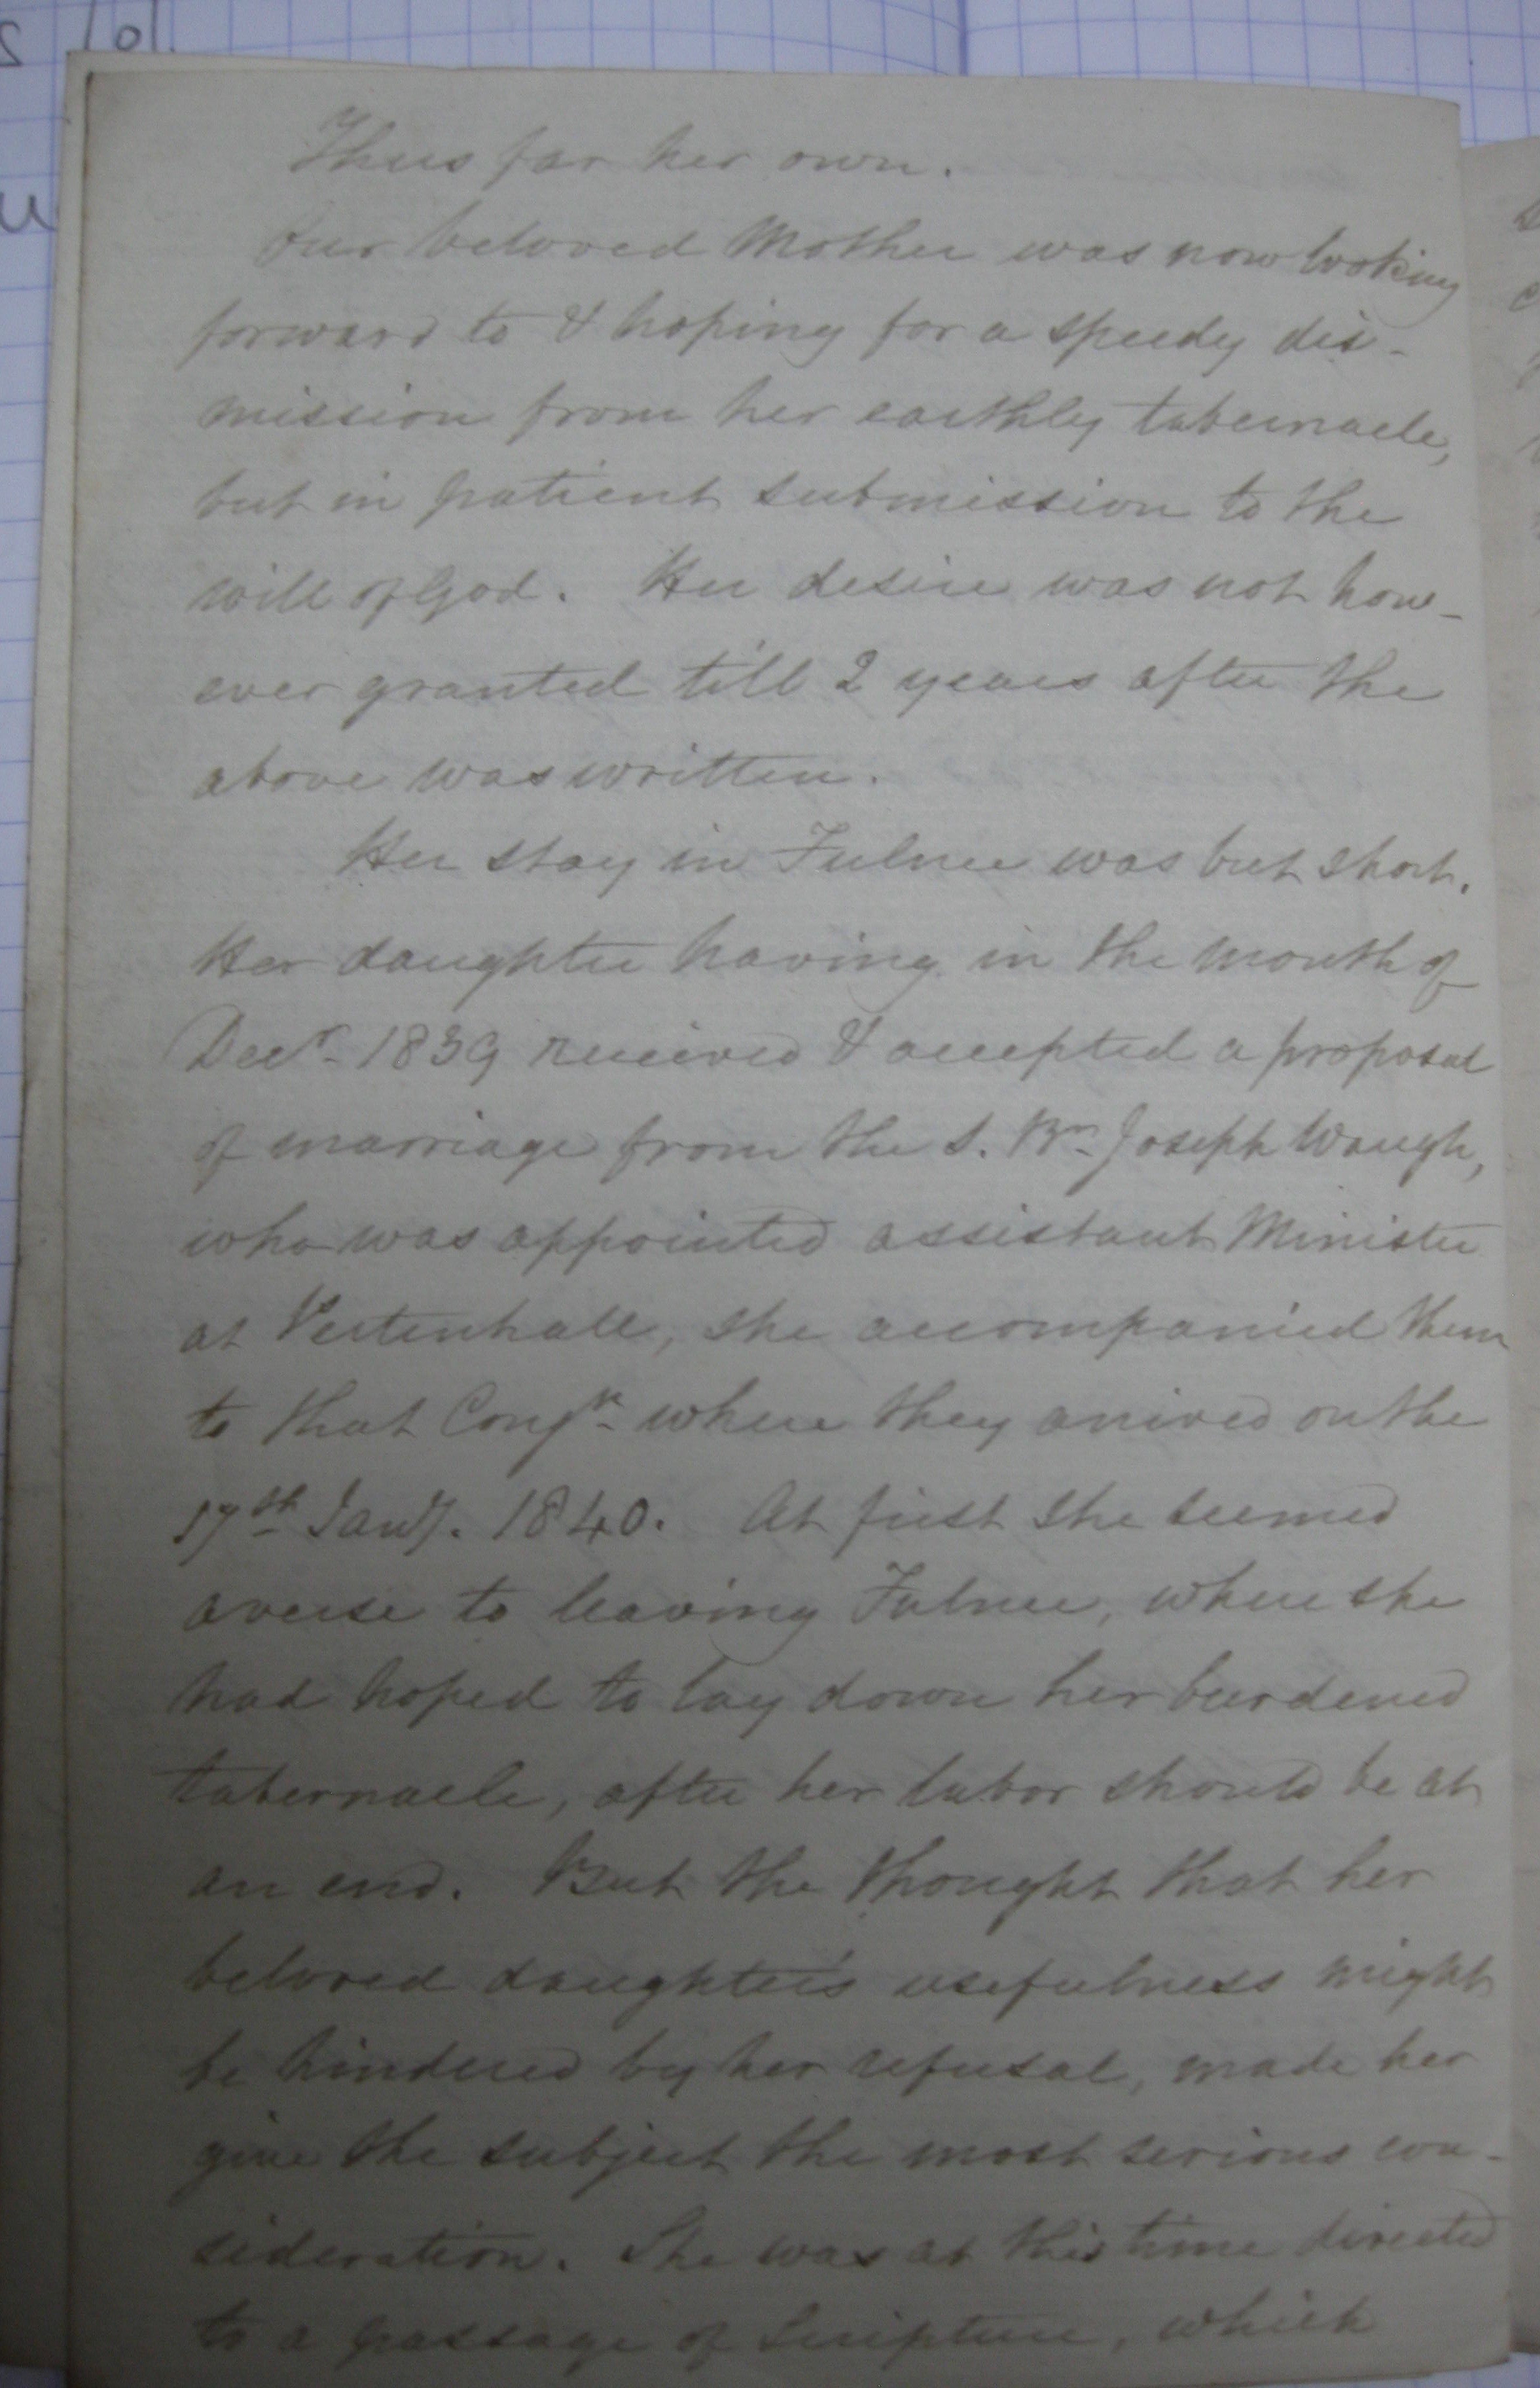 Thus far her own.
Our beloved Mother was now looking
forward to & hoping for a speedy dis-
mission from her earthly tabernacle,
but in patient submission to the
will of God. Her desire was not how-
ever granted till 2 years after the
above was written.
Her stay in Fulnec was but short.
Her daughter having in the month of
Decr. 1839 received & accepted a proposal
of marriage from the S. Br. Joseph Waugh,
who was appointed assistant Minister
at Pertenhall, she accompanied them
to that Congn. where they arrived on the
17th Jany. 1840. At first she seemed
averse to leaving Fulnec, where she
had hoped to lay down her burdened
tabernacle, after her labor should be at
an end. But the thought that her
beloved daughter's usefulness might
be hindered by her refusal, made her
give the subject the most serious con-
sideration. She was at this time directed
to a passage of Scripture, which